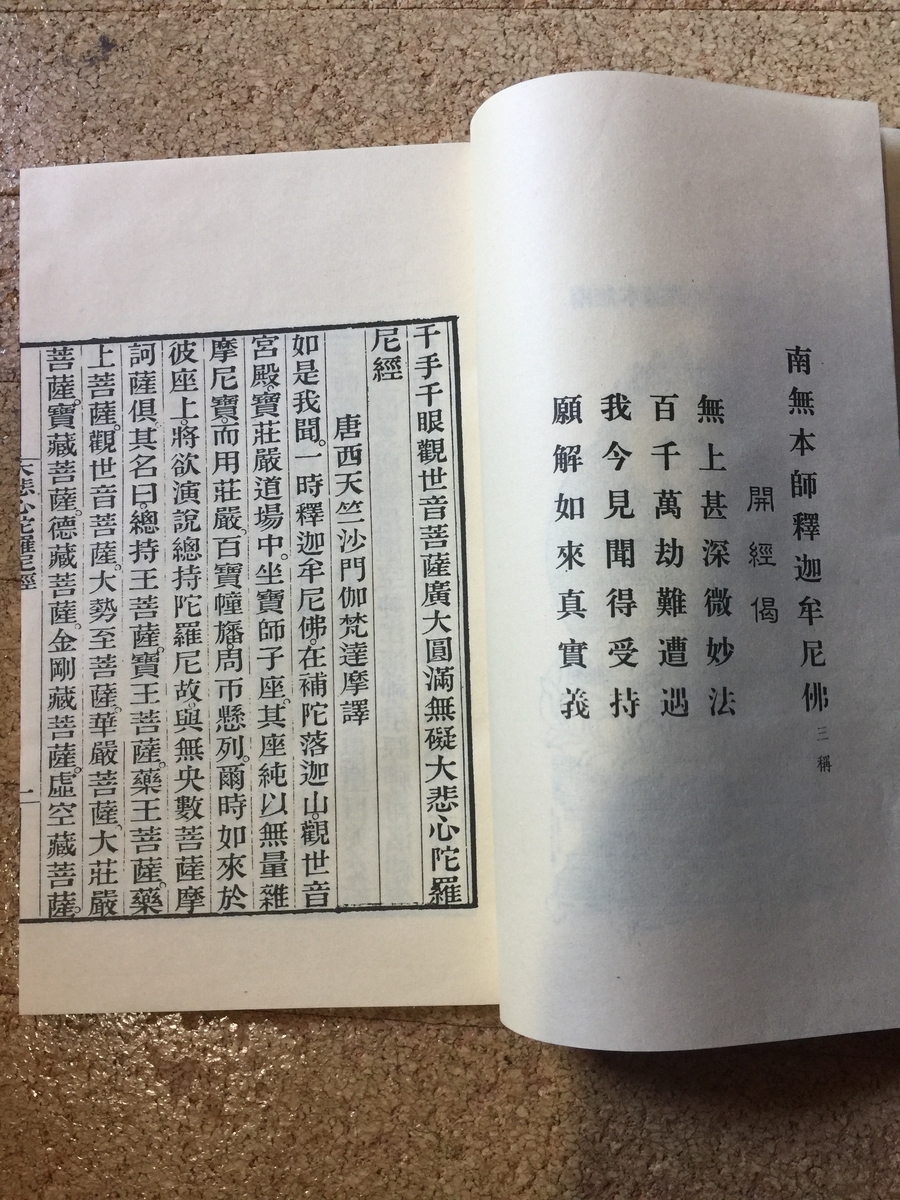 南無本師釋迦牟尼佛三稱
開經偈
無上甚深微妙法
百千萬劫難遭遇
我今見聞得受持
願解如來真實義
千手千眼觀世音菩薩廣大圓滿無礙大悲心陀羅
尼經
唐西天竺沙門伽梵達摩譯
如是我聞。一時釋迦牟尼佛。在補陀落迦山。觀世音
宮殿。寶莊嚴道場中。坐寶師子座。其座純以無量雜
摩尼寶。而用莊嚴。百寶幢旛。周帀懸列。爾時如來於
彼座上。將欲演說總持陀羅尼故。與無央數菩薩摩
訶薩俱。其名曰。總持王菩薩。寶王菩薩。藥王菩薩。藥
上菩薩。觀世音菩薩。大勢至菩薩。華嚴菩薩。大莊嚴
菩薩。寶藏菩薩。德藏菩薩。金剛藏菩薩。虛空藏菩薩。
大悲心陀羅尼經 一